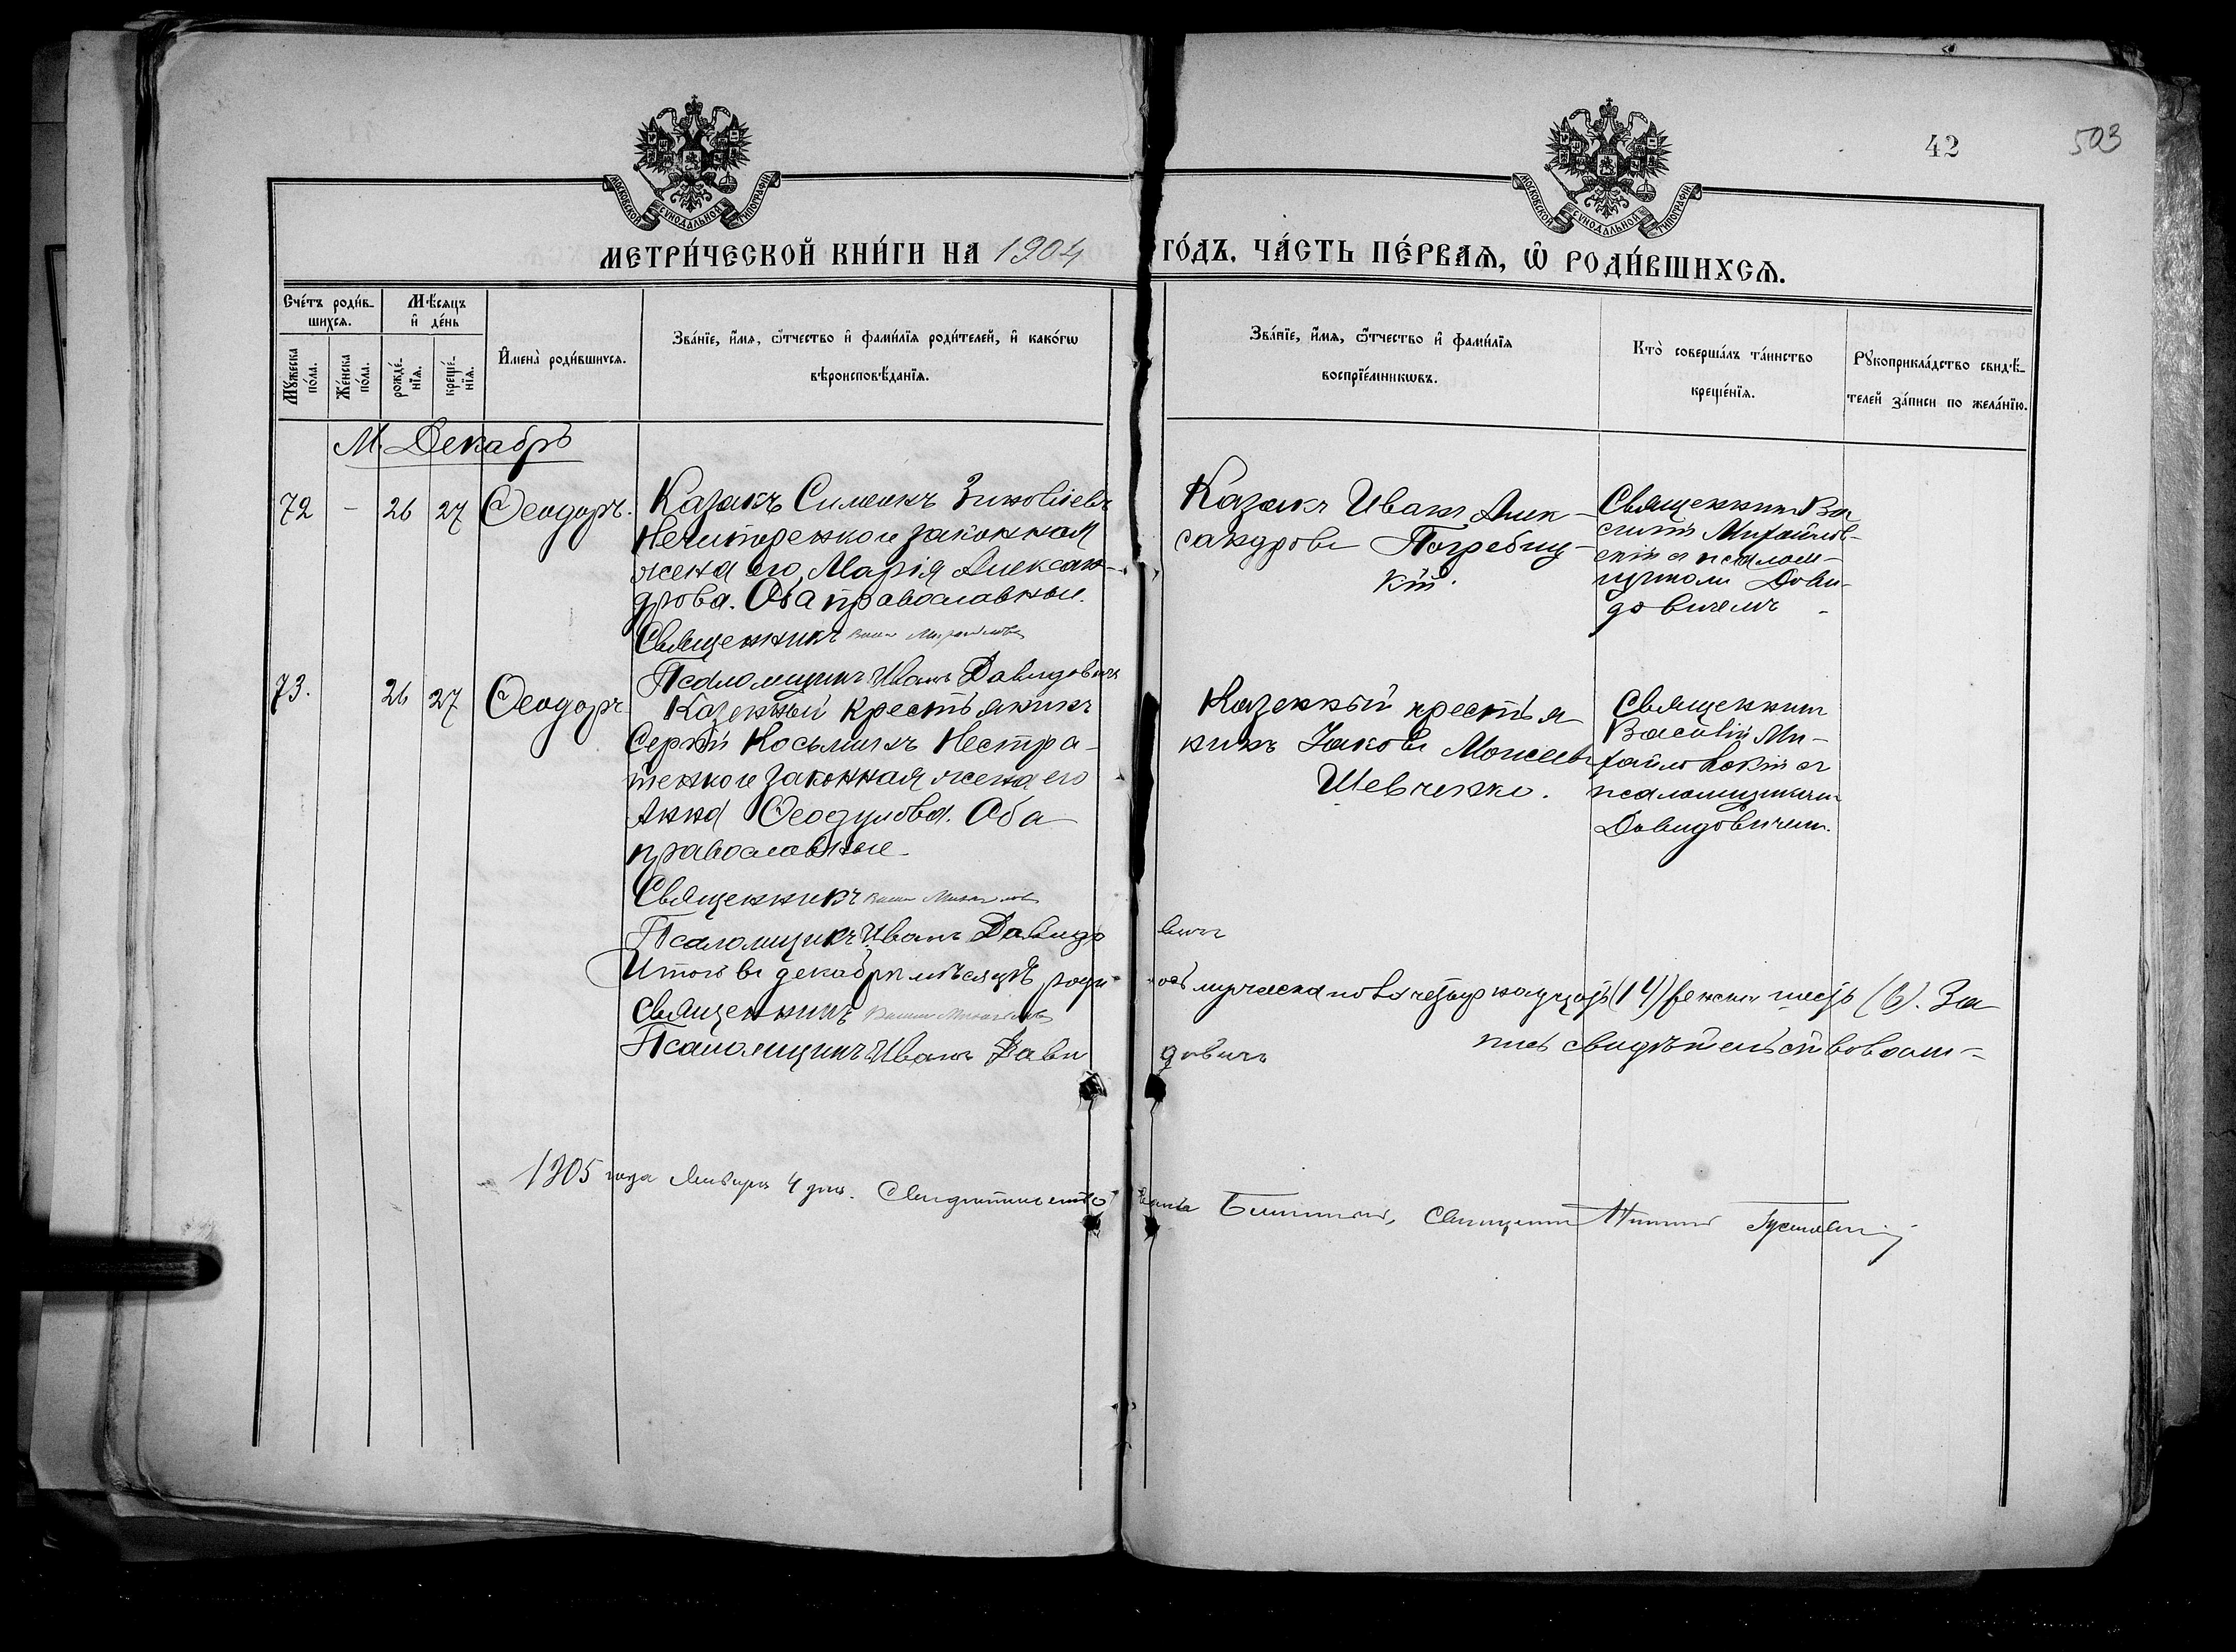 42
503
МОСКОВСКОЙ СѴНОДАЛЬНОЙ ТИПОГРАФІИ
МОСКОВСКОЙ СѴНОДАЛЬНОЙ ТИПОГРАФІИ
МЕТРИ́ЧЕСКОЙ КНИ́ГИ НА 1904 ГО́ДЪ, ЧА́СТЬ ПЕ́РВАѦ, Ѽ РОДИ́ВШИХСѦ.
Сче́тъ роди́в-
шихсѧ.
Мꙋ́жеска по́ла.
Же́нска по́ла.
Мѣ́сѧцъ
и҆ де́нь
рожде́-
нїѧ.
креще́-
нїѧ.
И҆мена̀ роди́вшихсѧ.
Зва́нїе, и҆́мѧ, ѻ҆́тчество и҆ фами́лїѧ роди́телей, и҆ како́гѡ
вѣроисповѣ́данїѧ.
Зва́нїе, и҆́мѧ, ѻ҆́тчество и҆ фами́лїѧ
воспрїе́мникѡвъ.
Кто̀ соверша́лъ та́инство
креще́нїѧ.
Рꙋкоприкла́дство свидѣ́-
телей за́писи по жела́нїю.
М. Декабрь
72 - 26 27 Ѳеодоръ.
Казакъ Симеонъ Зиновіевъ
Нечипоренко и законная
жена его, Марія Алексан-
дрова. Оба православные.
Священникъ
Псаломщикъ Иванъ Давидовичъ
Казакъ Иванъ Алек-
сандровъ Погребиц-
кій.
Священникъ Ва
силій Михайлов-
скій съ псалом-
щикомъ Дави-
довичемъ
73. 26 27 Ѳеодоръ
Казенный крестьянинъ
Сергій Косьминъ Нестра-
тенко и законная жена его
Анна Ѳеодулова. Оба
православные.
Священникъ
Псаломщикъ Иванъ Давидо вичъ
Казенный крестья-
нинъ Іаковъ Моисеевъ
Шевченко.
Священникъ
Василій Ми-
хайловскій съ
псаломщикомъ
Давидовичемъ.
Итого въ декабрѣ мѣсяцѣ роди- лось мужеска пола четырнадцать (14) женска шесть (6). За
пись свидѣтельствовали-
Священникъ
Псаломщикъ Иванъ Дави довичъ
1905 года Января 4 дня. Свидѣтельство